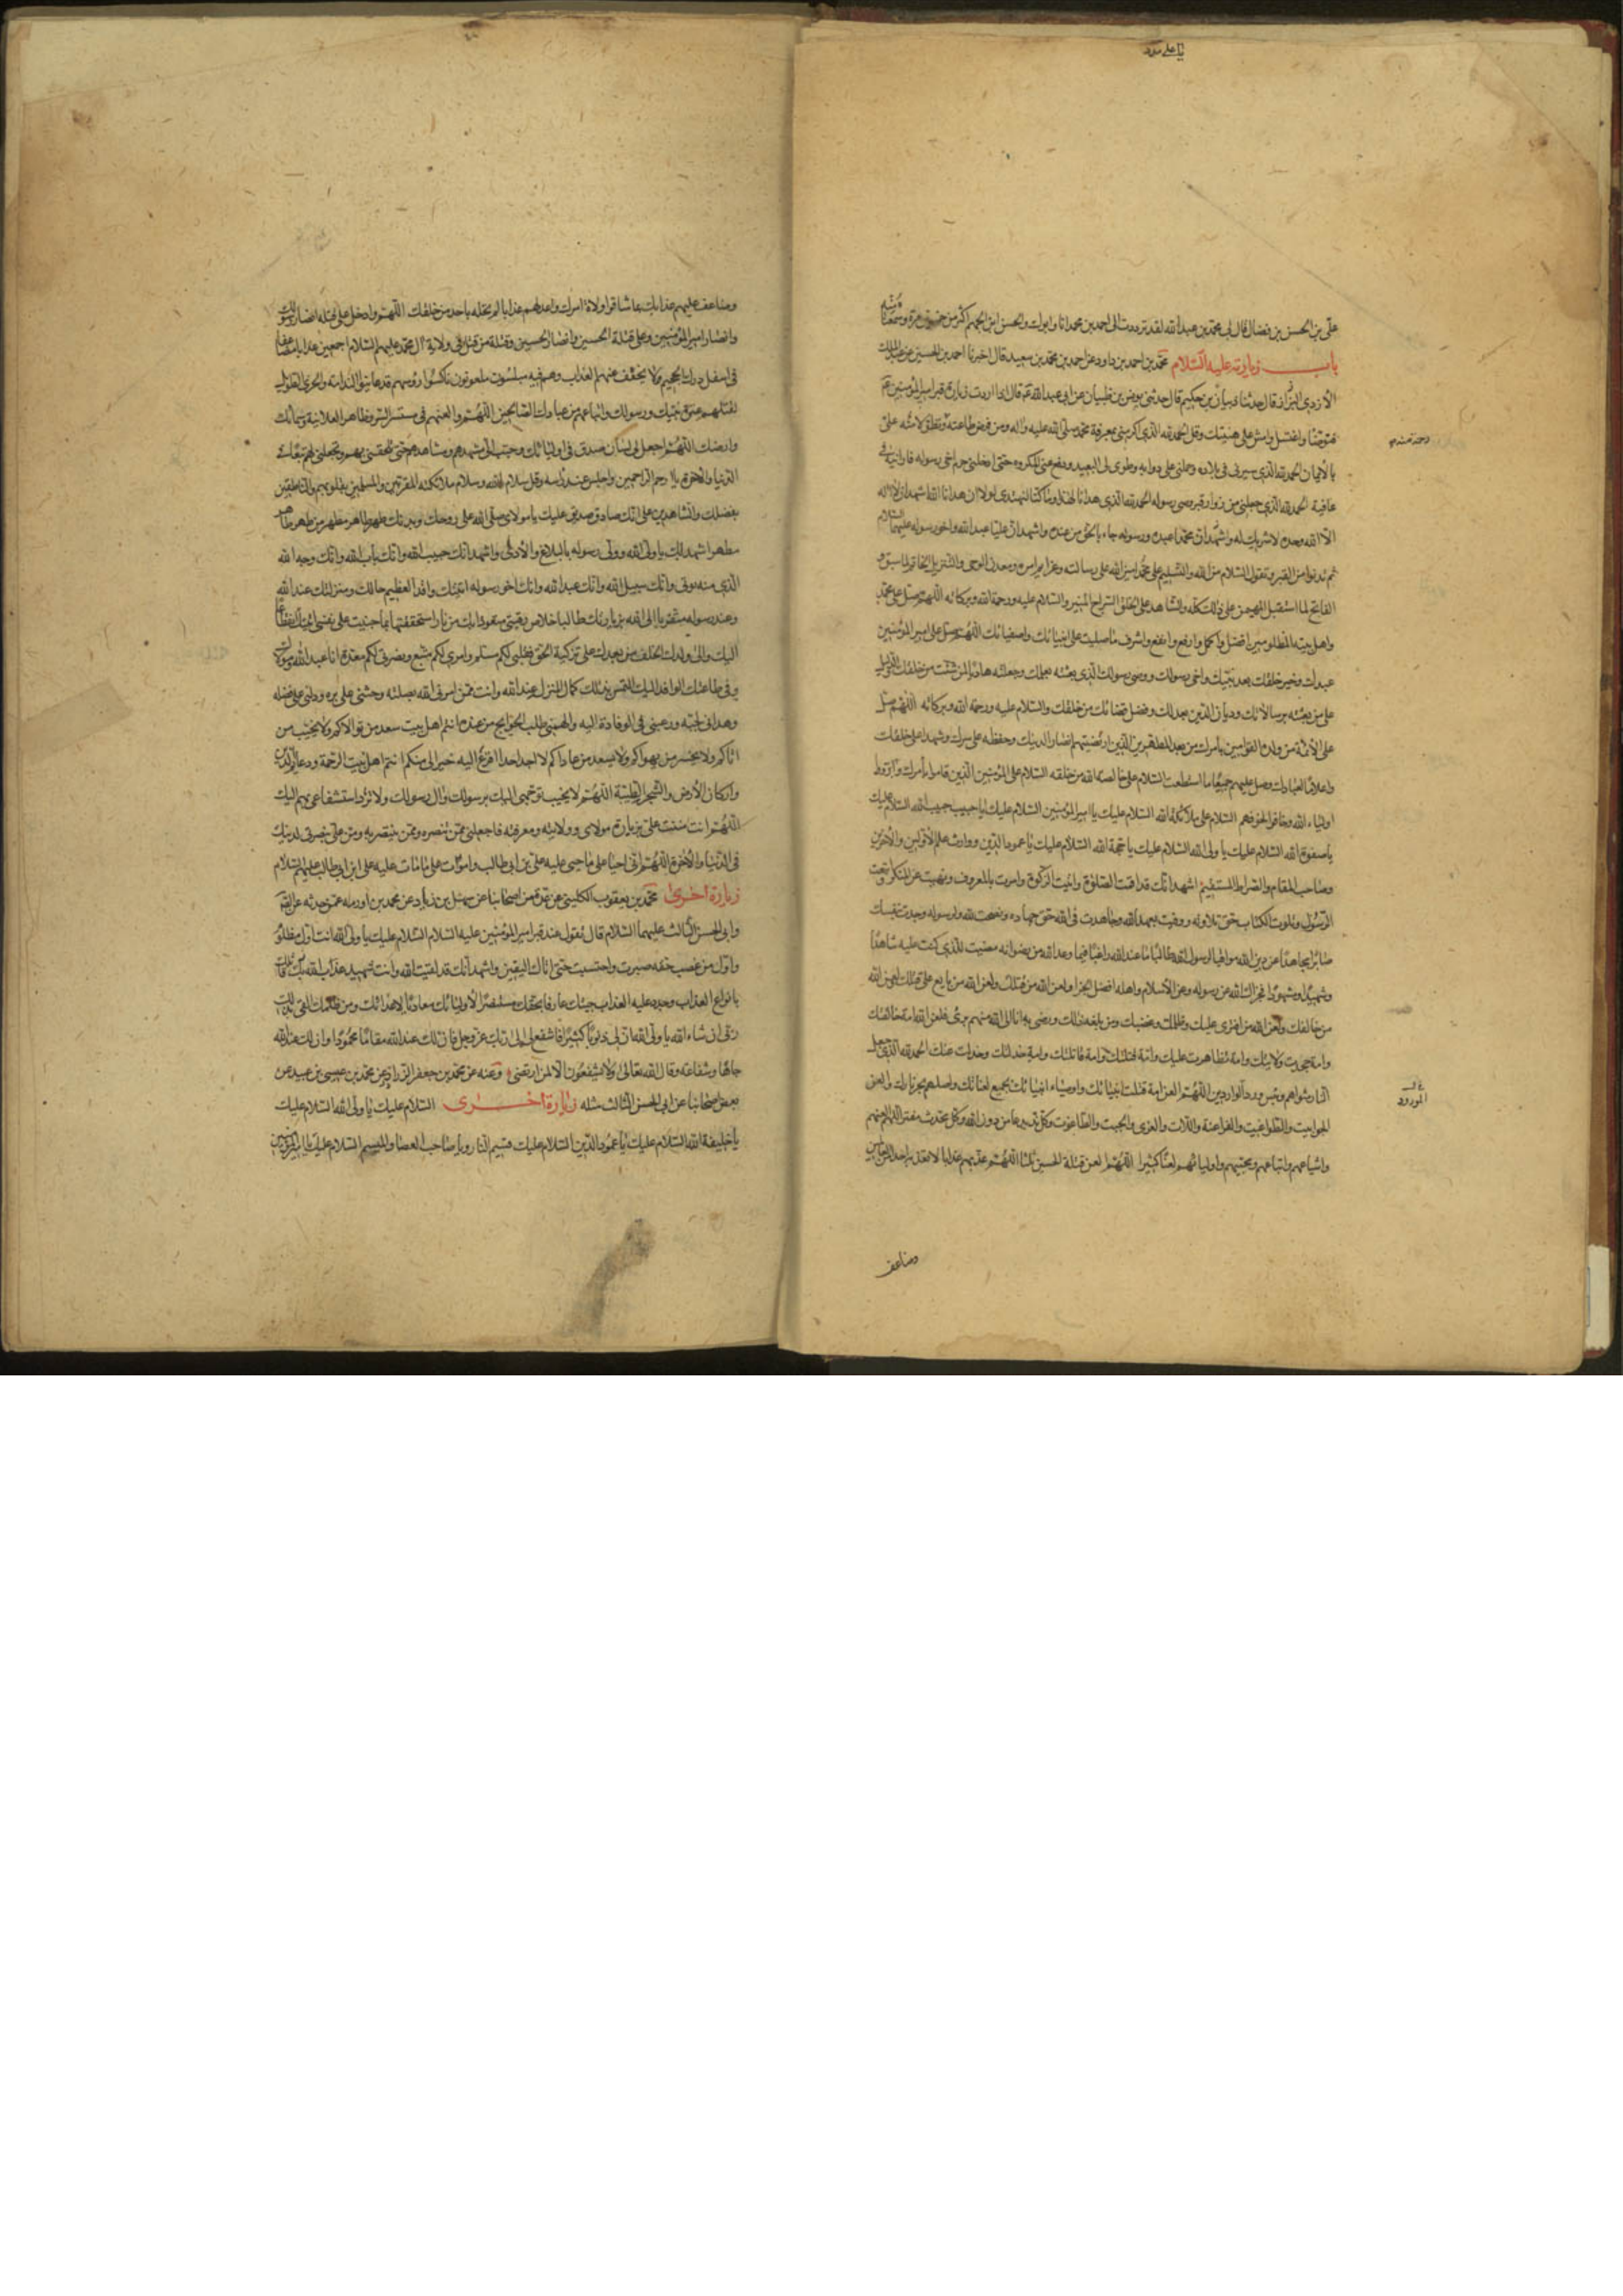 يا علي مدد
علي بن الحسن بن فضال قال لي محمد بن عبدالله لقد ترددت الى احمد بن محمد انا وابوك والحسن ابن الجهم اكثر من خمسين مرة وسمعناه منه
باب زيارته عليه السلام محمد بن احمد بن داود عن احمد بن محمد بن سعيد قال اخبرنا احمد بن الحسين بن عبد الملك
الأزدي البزاز قال حدثنا ذبيان بن حكيم قال حدثني يونس بن ظبيان عن ابي عبد الله ع قال اذا اردت زيارة قبر امير المؤمنين ع
فتوضأ واغتسل وامش على هنيئتك وقل الحمد لله الذي اكرمني بمعرفة محمد صلى الله عليه واله ومن فرض طاعته وتطول منه علي
بالأيمان الحمد لله الذي سيرني في بلاده وحملني على دوابه وطوى لي البعيد ودفع عني المكروه حتى ادخلني حرم اخي رسوله فارانيه في
عافية الحمد لله الذي جعلني من زوار قبر وصي رسوله الحمد لله الذي هدانا لهذا وما كنا لنهتدي لولا ان هدانا الله اشهد ان لا اله
الا الله وحده لا شريك له واشهد ان محمدا عبده ورسوله جاء بالحق من عنده واشهد ان عليا عبد الله واخو رسوله عليهما السلام
ثم تدنوا من القبر وتقول السلام من الله والتسليم على محمد امين الله على رسالته وعزايم امره ومعدن الوحي والتنزيل الخاتم لما سبق و
الفاتح لما استقبل المهيمن على ذلك كله والشاهد على الخلق السراج المنير والسلام عليه ورحمة الله وبركاته اللهم صل على محمد
واهل بيته المظلومين افضل واكمل وارفع وانفع واشرف ما صليت على انبيائك واصفيائك اللهم صل على امير المؤمنين
عبدك وخير خلقك بعد نبيك واخي رسولك ووصي رسولك الذي بعثته بعلمك وجعلته هاديا لمن شئت من خلقك والدليل
على من بعثته برسالاتك وديان الدين بعدلك وفصل قضائك من خلقك والسلام عليه ورحمة الله وبركاته اللهم صل
على الأئمة من ولده القوامين بأمرك من بعده المطهرين الذين ارتضيتهم انصارا لدينك وحفظة على سرك وشهداء على خلقك
واعلاما لعبادك وصل عليهم جميعا ما استطعت السلام على خالصة الله من خلقه السلام على المؤمنين الذين قاموا بأمرك وآزروا
اولياء الله وخافوا لخوفهم السلام على ملائكة الله السلام عليك يا امير المؤمنين السلام عليك يا حبيب حبيب الله السلام عليك
يا صفوة الله السلام عليك يا ولي الله السلام عليك يا حجة الله السلام عليك يا عمود الدين ووارث علم الأولين والأخرين
وصاحب المقام والصراط المستقيم اشهد انك قد اقمت الصلوة وآتيت الزكوة وامرت بالمعروف ونهيت عن المنكر واتبعت
الرسول وتلوت الكتاب حق تلاوته ووفيت بعهد الله وجاهدت في الله حق جهاده ونصحت لله ولرسوله وجدت بنفسك
صابرا مجاهدا عن دين الله موقيا لرسول الله طالبا ما عند الله راغبا فيما وعد الله من رضوانه مضيت للذي كنت عليه شاهدا
وشهيدا ومشهودا فجزاك الله عن رسوله وعن الأسلام واهله افضل الجزاء ولعن الله من قتلك ولعن الله من بايع على قتلك ولعن الله
من خالفك ولعن الله من افترى عليك وظلمك وغصبك ومن بلغه ذلك ورضى به انا الى الله منهم برئ ولعن الله امة خالفتك
وامة جحدت ولايتك وامة تظاهرت عليك وامة قتلتك وامة قاتلتك وامة خذلتك وخذلت عنك الحمد لله الذي جعل
النار مثواهم وبئس ورد الواردين اللهم العن امة قتلت انبيائك واوصياء انبيائك بجميع لعناتك واصلهم حر نارك والعن
الجوابيت والطواغيت والفراعنة واللات والعزى والجبت والطاغوت وكل ند يدعا من دون الله وكل محدث مفتر اللهم العنهم
واشياعهم واتباعهم ومحبيهم واولياءهم لعنا كثيرا اللهم العن قتلة الحسين ثلثا اللهم عذبهم عذابا لا تعذبه احدا من العالمين
وضاعف
المورود
وضاعف عليهم عذابك بما شاقوا ولاة امرك واعد لهم عذابا لم تحله باحد من خلقك اللهم وادخل على قتلة انصار رسولك
وانصار امير المؤمنين وعلى قتلة الحسين وانصار الحسين وقتلة من قتل في ولاية آل محمد عليهم السلام اجمعين عذابا مضاعفا
في اسفل درك الجحيم ولا يخفف عنهم العذاب وهم فيه مبلسون ملعونون ناكسوا رؤسهم قد عاينوا الندامة والخزي الطويل
لقتلهم عترة نبيك ورسولك واتباعهم من عبادك الصالحين اللهم والعنهم في مستسر السر وظاهر العلانية وسمائك
وارضك اللهم اجعل لي لسان صدق في اوليائك وحبب الي مشهدهم ومشاهدهم حتى تلحقني بهم وتجعلني لهم تبعا في
الدنيا والآخرة يا ارحم الراحمين واجلس عند رأسه وقل سلام الله وسلام ملائكته المقربين والمسلمين بقلوبهم والناطقين
بفضلك والشاهدين على انك صادق صديق عليك يا مولاي صلى الله على روحك وبدنك طهر طاهر مطهر من طهر طاهر
مطهر اشهد لك يا ولي الله وولي رسوله بالبلاغ والأداء واشهد انك حبيب الله وانك باب الله وانك وجه الله
الذي منه يوتى وانك سبيل الله وانك عبد الله وانك اخو رسوله اتيتك وافدا لعظيم حالك ومنزلتك عند الله
وعند رسوله متقربا الى الله بزيارتك طالبا خلاص رقبتي متعوذا بك من نار استحققتها بما جنيت على نفسي اتيتك انقطاعا
اليك والى ولدك الخلف من بعدك على تزكية الحق فقلبي لكم مسلم وامري لكم متبع ونصرتي لكم معدة انا عبد الله ومولاك
وفي طاعتك الوافد اليك التمس بذلك كمال المنزلة عند الله وانت ممن امرني الله بصلته وحثني على بره ودلني على فضله
وهداني لحبه ورغبني في الوفادة اليه والهمني طلب الحوائج من عنده انتم اهل بيت سعد من تولاكم ولا يخيب من
اتاكم ولا يخسر من يهواكم ولا يسعد من عاداكم لا اجد احدا افزع اليه خيرا لي منكم انتم اهل بيت الرحمة ودعائم الدين
واركان الأرض والشجرة الطيبة اللهم لا تخيب توجهي اليك برسولك وآل رسولك ولا ترد استشفاعي بهم اليك
اللهم انت مننت علي بزيارة مولاي وولايته ومعرفته فاجعلني ممن تنصره وممن ينتصر به ومن علي بنصرتي لدينك
في الدنيا والأخرة اللهم اني احيا على ما حيي عليه علي بن ابي طالب واموت على ما مات عليه علي ابن ابي طالب عليهم السلام
زيارة اخرى محمد بن يعقوب الكليني عن عدة من اصحابنا عن سهل بن زياد عن محمد بن اورمه عمن حدثه عن الصادق
وابي الحسن الثالث عليهما السلام قال تقول عند قبر امير المؤمنين عليه السلام السلام عليك يا ولي الله انت اول مظلوم
واول من غصب حقه صبرت واحتسبت حتى اتاك اليقين واشهد انك قد لقيت الله وانت شهيد عذب الله قاتلك
بانواع العذاب وجدد عليه العذاب جئتك عارفا بحقك مستبصرا لأوليائك معاديا لاعدائك ومن ظلمك القى بذلك
ربي ان شاء الله يا ولي الله ان لي ذنوبا كثيرا فاشفع لي الى ربك عز وجل فان لك عند الله مقاما محمودا وان لك عند الله
جاها وشفاعة وقال الله تعالى ولا يشفعون الا لمن ارتضى وعنه عن محمد بن جعفر الرزاز عن محمد بن عيسى بن عبيد عن
بعض اصحابنا عن ابي الحسن الثالث مثله زيارة اخرى السلام عليك يا ولي الله السلام عليك
يا خليفة الله السلام عليك يا عمود الدين السلام عليك قسيم النار ويا صاحب العصا والميسم السلام عليك يا امير المؤمنين